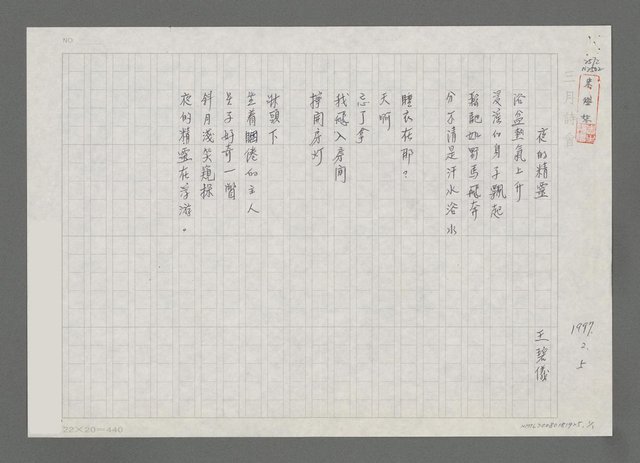 三月詩會
夜的精靈
王碧儀
1997.
2.
5
浴盆熱氣上升
浸落的身子飄起
鬆
分不清是汗水浴水
睡衣在那?
天啊
忘了拿
我飛入房間
擰開房灯
牀頭下
坐着睏倦的主人
星子好奇一瞥
斜月淺笑窺探
夜的精靈在浮游。
NO
22×20=440